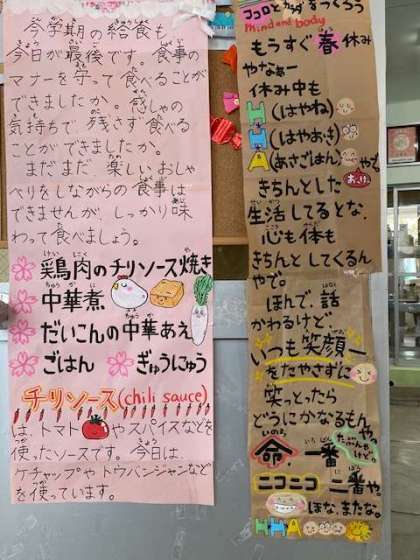 今学期の給食も
今日が最後です。食事の
マナーを守って食べることが
できましたか。感しゃの
気持ちで残さず食べる
ことができましたか。
まだまだ楽しいおしゃ
べりをしながらの食事は
できませんが、しっかり味
わって食べましょう。
鶏肉のチリソース焼き
中華煮
だいこんの中華あえ
ごはん ぎゅうにゅう
チリソース(chili sauce)
は、トマトやスパイスなどを
使ったソースです。今日は、
ケチャップやトウバンジャンなど
を使っています。
ココロとカラダをつくろう
Mind and body
もうすぐ春休み
やなぁー
休み中も
H(はやね)
H(はやおき)
A(あさごはん)やで。
きちんとした
生活してるとな、
心も体も
きちんとしてくるん
やで。
ほんで、話
かわるけど、
いつも笑顔
をたやさずに
笑っとったら
どうにかなるもん
やで
命、一番
ニコニコ二番や。
ほな、またな。
HHA